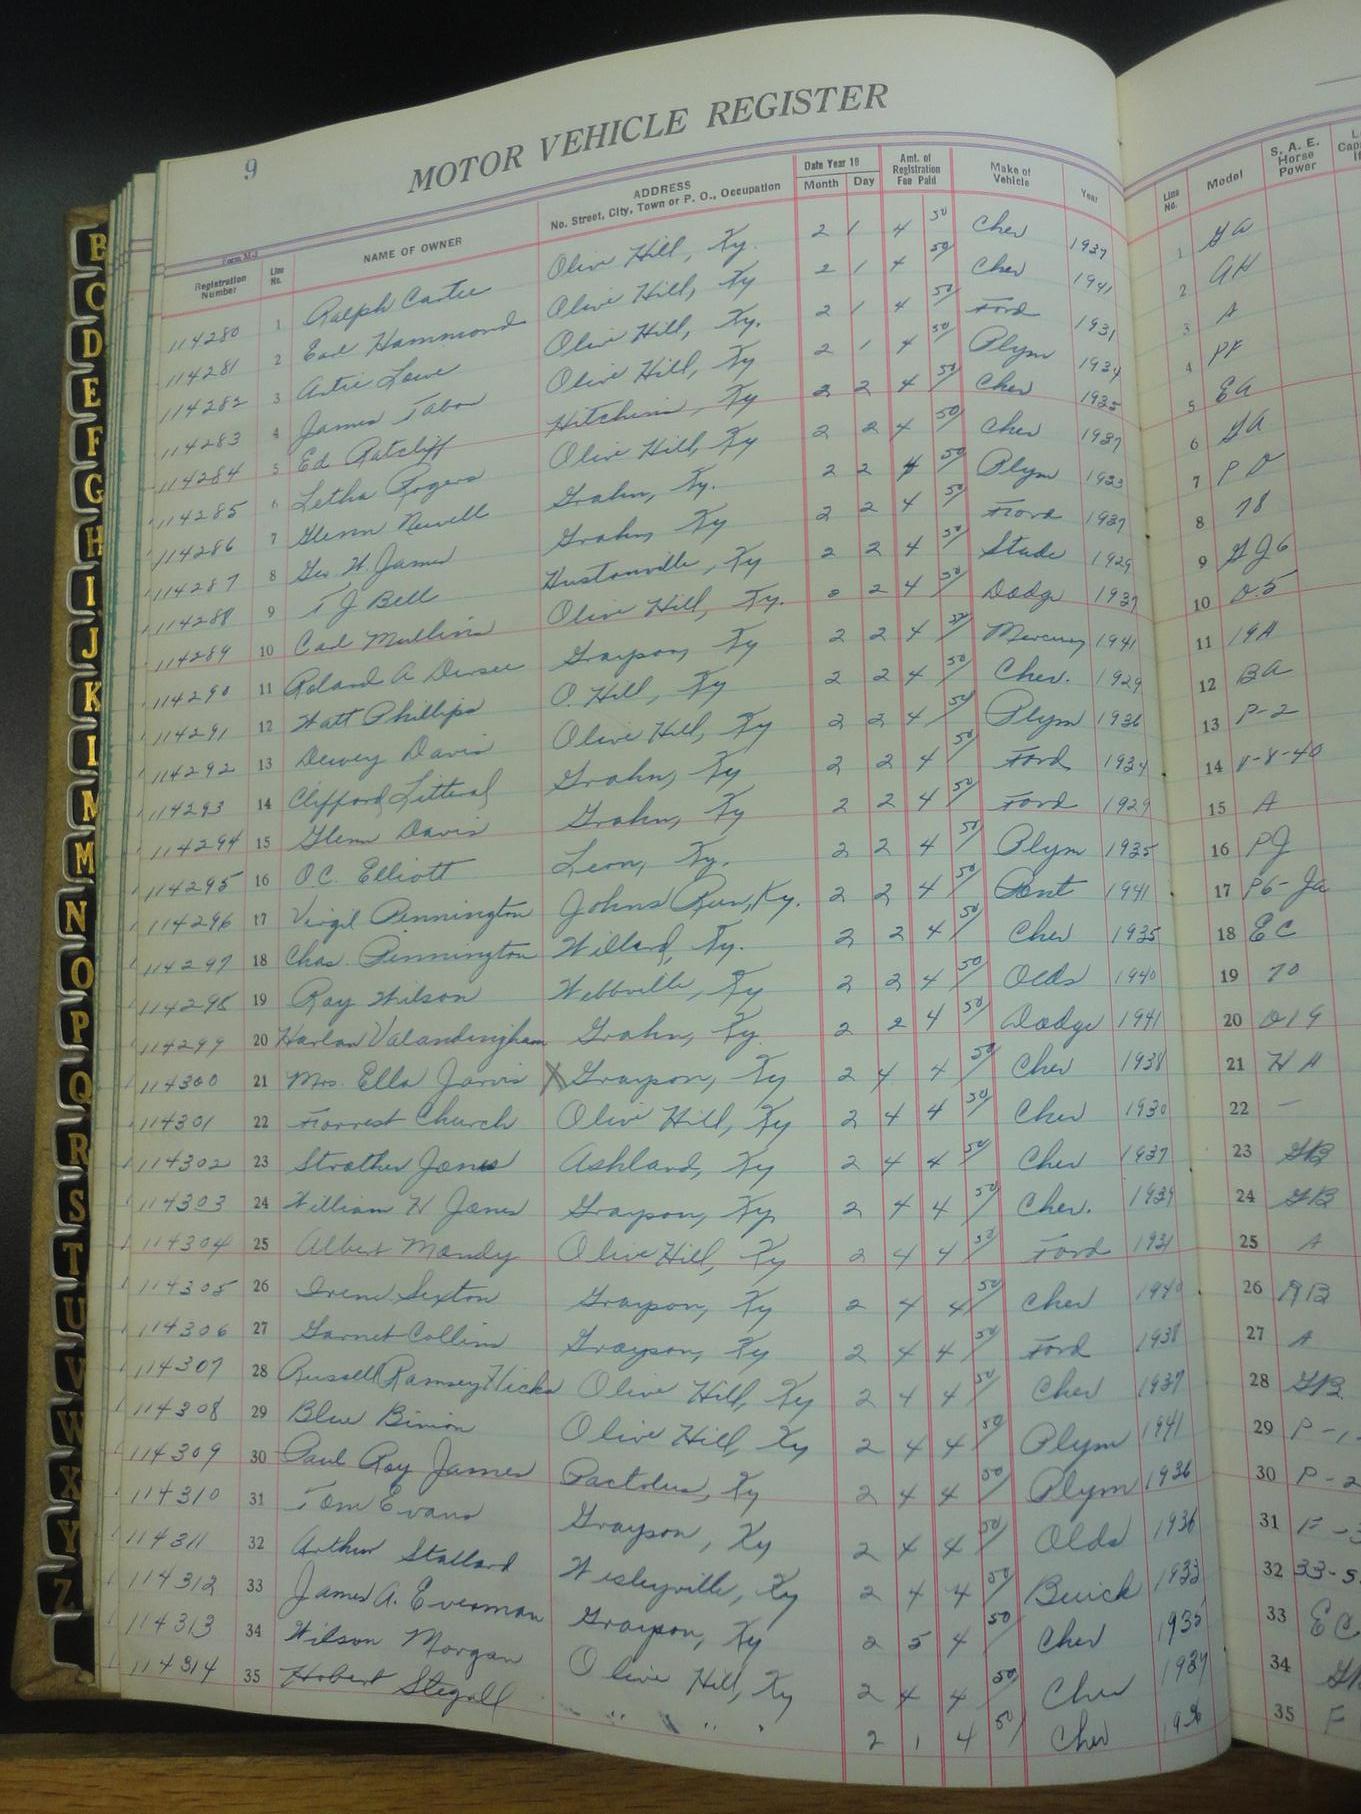 9
MOTOR VEHICLE REGISTER
Form M-3
Registration Number Line No. NAME OF OWNER ADDRESS No. Street, City, Town or P. O., Occupation Date Year 19 Month Day Amt. of Registration Fee Paid Make of Vehicle Year Line No. Model S. A. E. Horse Power
114280 1 Ralph Carter Olive Hill, Ky. 2 1 4 50 Chev 1937 1 GA
114281 2 Earl Hammond Olive Hill, Ky 2 1 4 50 Chev 1941 2 AH
114282 3 Artie Lowe Olive Hill, Ky. 2 1 4 50 Ford 1931 3 A
114283 4 James Tabor Olive Hill, Ky 2 1 4 50 Plym 1934 4 PF
114284 5 Ed Ratcliff Hitchins, Ky 2 2 4 50 Chev 1935 5 EA
114285 6 Letha Rogers Olive Hill, Ky 2 2 4 50 Chev 1937 6 GA
114286 7 Glenn Newell Grahn, Ky. 2 2 4 50 Plym 1933 7 PD
114287 8 Geo. W. James Grahn, Ky 2 2 4 50 Ford 1937 8 78
114288 9 T J Bell Hustonville, Ky 2 2 4 50 Stude 1929 9 GJ6
114289 10 Carl Mullins Olive Hill, Ky. 2 4 50 Dodge 1937 10 D.5
114290 11 Roland A Grayson, Ky 2 2 4 50 Mercury 1941 11 19A
114291 12 Watt Phillips O. Hill, Ky 2 2 4 50 Chev. 1929 12 BA
114292 13 Dewey Davis Olive Hill, Ky 2 2 4 50 Plym 1936 13 P-2
114293 14 Clifford Litteral Grahn, Ky 2 2 4 50 Ford 1934 14 V-8-40
114294 15 Glenn Davis Grahn, Ky 2 2 4 50 Ford 1929 15 A
114295 16 O.C. Elliott Leon, Ky. 2 2 4 50 Plym 1935 16 PJ
114296 17 Virgil Pennington Johns Run, Ky. 2 2 4 50 Pont 1941 17 P6-JA
114297 18 Chas. Pennington Willard, Ky. 2 2 4 50 Chev 1935 18 EC
114298 19 Ray Wilson Webbville, Ky 2 2 4 50 Olds 1940 19 70
114299 20 Harlan Valandingham Grahn, Ky. 2 2 4 50 Dodge 1941 20 D19
114300 21 Mrs. Ella Jarvis X Grayson, Ky 2 4 4 50 Chev 1938 21 HA
114301 22 Forrest Church Olive Hill, Ky 2 4 4 50 Chev 1930 22 —
114302 23 Strother Jones Ashland, Ky 2 4 4 50 Chev 1937 23 GB
114303 24 William H Jones Grayson, Ky 2 4 4 50 Chev. 1937 24 GB
114304 25 Albert Mandy Olive Hill, Ky 2 4 4 50 Ford 1931 25 A
114305 26 Irene Sexton Grayson, Ky 2 4 4 50 Chev 1940 26
114306 27 Garnet Collins Grayson, Ky 2 4 4 50 Ford 27 A
114307 28 Russell Ramsey Hicks Olive Hill, Ky 2 4 4 50 Chev 1937 28 GB
114308 29 Blue Binion Olive Hill, Ky 2 4 4 50 Plym 1941 29 P-1
114309 30 Paul Roy James Pactolus, Ky 2 4 4 50 Plym 1936 30 P-2
114310 31 Tom Evans Grayson, Ky 2 4 4 50 Olds 1936 31 F-3
114311 32 Arthur Stallard Wesleyville, Ky 2 4 4 50 Buick 1933 32 33-5
114312 33 James A. Everman Grayson, Ky 2 5 4 50 Chev 1935 33 EC
114313 34 Wilson Morgan Olive Hill, Ky 2 4 4 50 Chev 1937 34
114314 35 Hobert Stegall " " 2 1 4 50 Chev 35 F
B
C
D
E
F
G
H
I
J
K
M
N
O
P
Q
R
S
T
U
V
W
X
Y
Z